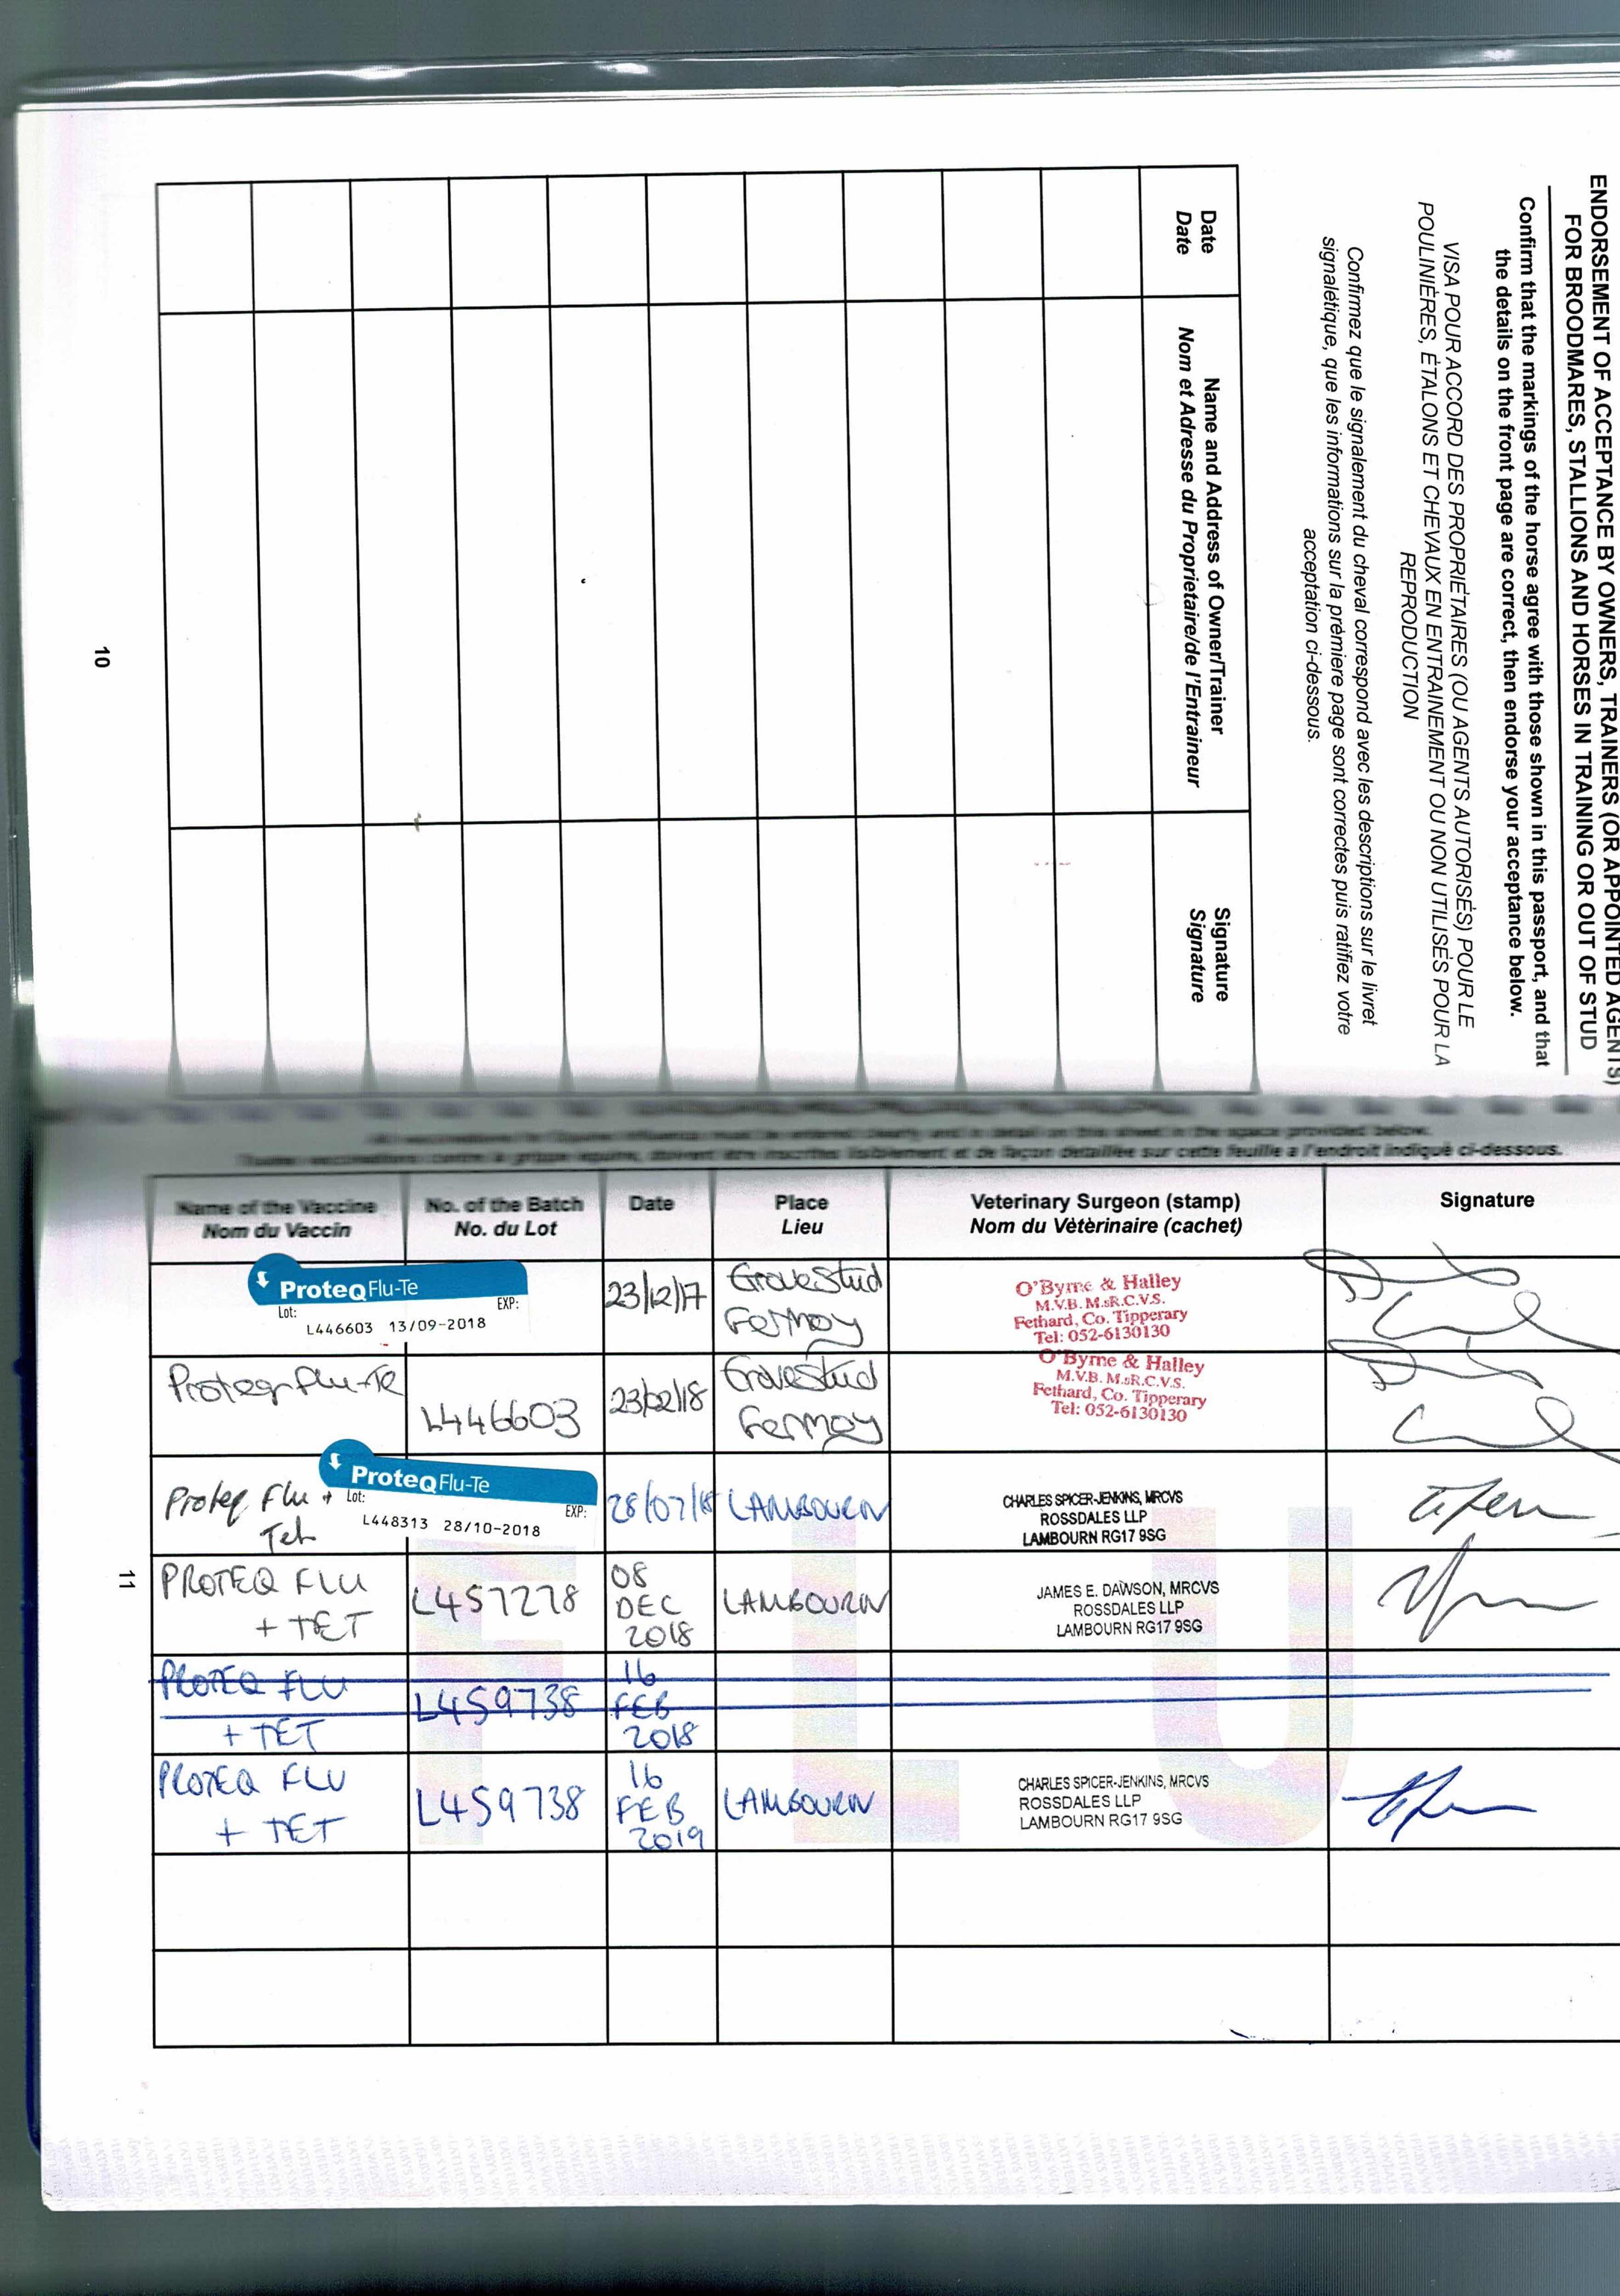 ENDORSEMENT OF ACCEPTANCE BY OWNERS, TRAINERS (OR APPOINTED AGENTS)
FOR BROODMARES, STALLIONS AND HORSES IN TRAINING OR OUT OF STUD
Confirm that the markings of the horse agree with those shown in this passport, and that
the details on the front page are correct, then endorse your acceptance below.
VISA POUR ACCORD DES PROPRIÉTAIRES (OU AGENTS AUTORISÉS) POUR LE
POULINIÈRES, ÉTALONS ET CHEVAUX EN ENTRAINEMENT OU NON UTILISÉS POUR LA
REPRODUCTION
Confirmez que le signalement du cheval correspond avec les descriptions sur le livret
signalétique, que les informations sur la première page sont correctes puis ratifiez votre
acceptation ci-dessous.
Date Name and Address of Owner/Trainer Signature
Date Nom et Adresse du Proprietaire/de l'Entraineur Signature
10
All vaccinations for Equine Influenza must be entered clearly and in detail on this sheet in the space provided below.
Toutes vaccinations contre la grippe equine, doivent être inscrites lisiblement et de façon detaillée sur cette feuille a l'endroit indiqué ci-dessous.
Name of the Vaccine No. of the Batch Date Place Veterinary Surgeon (stamp) Signature
Nom du Vaccin No. du Lot Lieu Nom du Vétèrinaire (cachet)
ProteqFlu-Te
Lot: EXP:
L446603 13/09-2018
23/12/17
Grove Stud
Fermoy
O'Byrne & Halley
M.V.B. M.sR.C.V.S.
Fethard, Co. Tipperary
Tel: 052-6130130
Proteq Flu-Te
L446603
23/02/18
Grove Stud
Fermoy
O'Byrne & Halley
M.V.B. M.sR.C.V.S.
Fethard, Co. Tipperary
Tel: 052-6130130
Proteq Flu +
Tet
ProteqFlu-Te
Lot: EXP:
L448313 28/10-2018
28/07/18
LAMBOURN
CHARLES SPICER-JENKINS, MRCVS
ROSSDALES LLP
LAMBOURN RG17 9SG
PROTEQ FLU
+ TET
L457278
08
DEC
2018
LAMBOURN
JAMES E. DAWSON, MRCVS
ROSSDALES LLP
LAMBOURN RG17 9SG
PROTEQ FLU
+ TET
L459738
16
FEB
2018
PROTEQ FLU
+ TET
L459738
16
FEB
2019
LAMBOURN
CHARLES SPICER-JENKINS, MRCVS
ROSSDALES LLP
LAMBOURN RG17 9SG
FLU
11